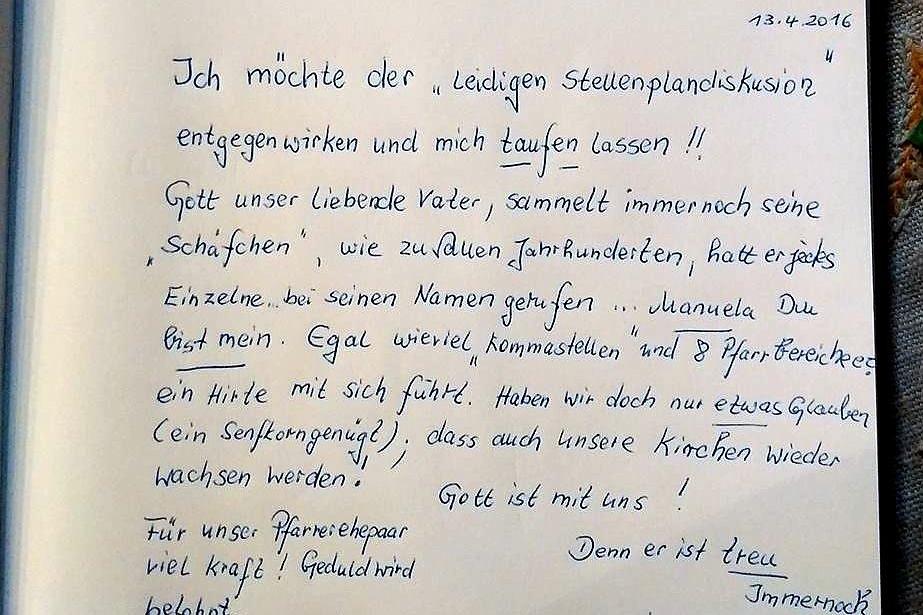 13.4.2016
Ich möchte der „Leidigen Stellenplandiskusion"
entgegenwirken und mich taufen lassen !!
Gott unser liebende Vater, sammelt immernoch seine
„Schäfchen", wie zu Jahrhunderten, hatt er jeds
Einzelne.. bei seinen Namen gerufen ... Manuela Du
bist mein. Egal wieviel „Kommastellen" und 8 Pfarrbereiche
ein Hirte mit sich führt. Haben wir doch nur etwas Glauben
(ein Senfkorngenügt), dass auch unsere Kirchen wieder
wachsen werden!
Gott ist mit uns !
Für unser Pfarrerehepaar
viel kraft! Geduld wird
belohnt
Denn er ist treu
Immernoch